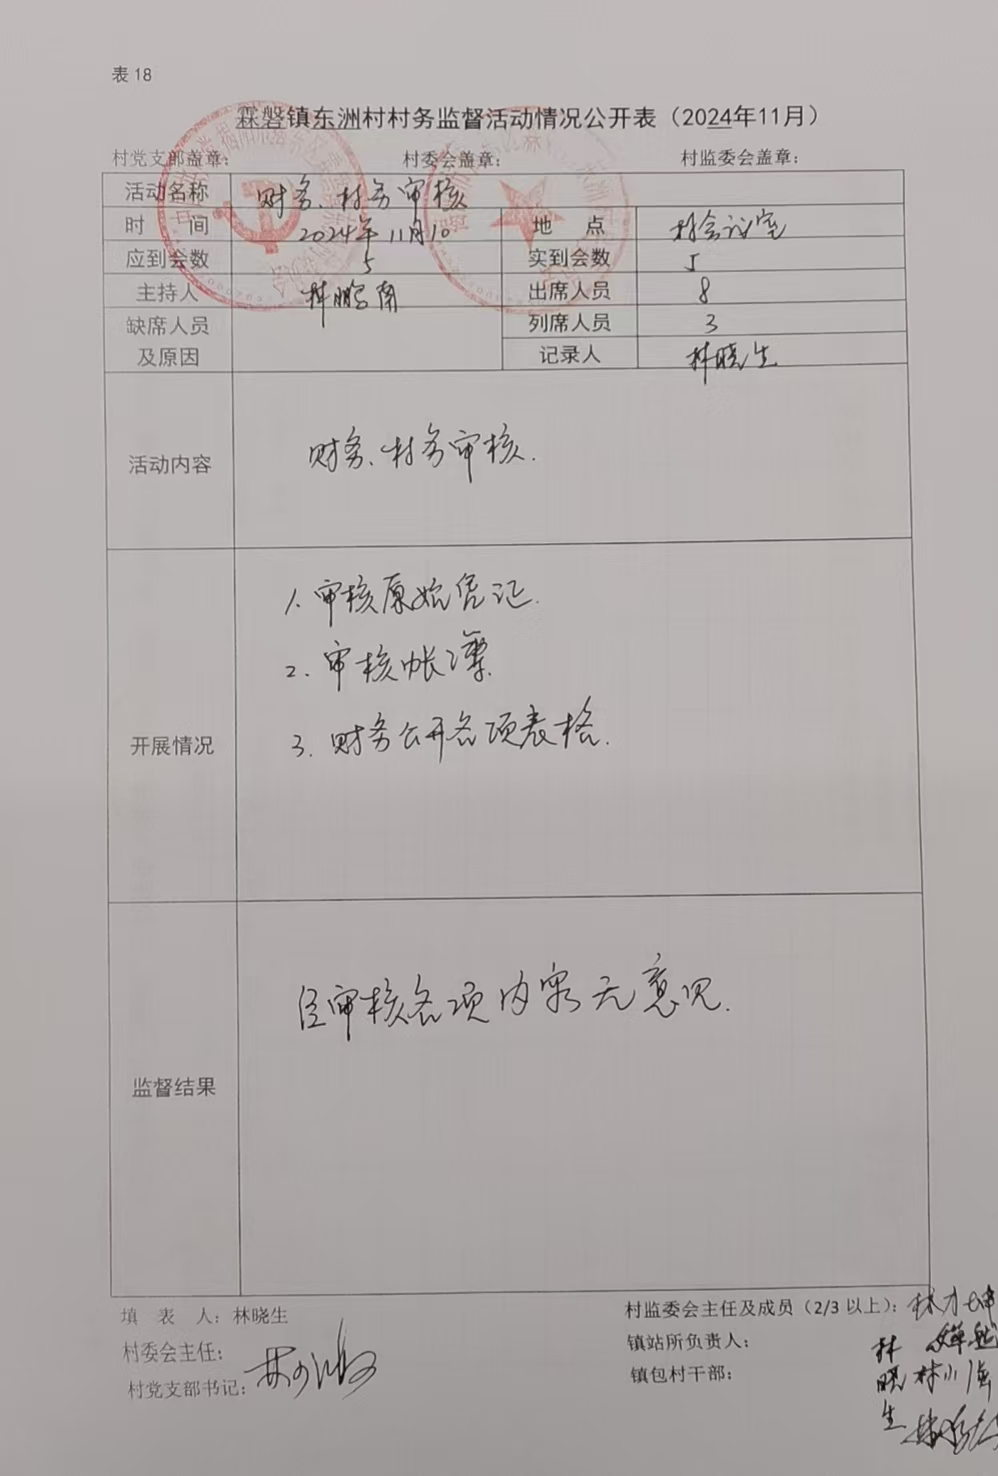 表 18
霖磐镇东洲村村务监督活动情况公开表（2024年11月）
村党支部盖章： 村委会盖章： 村监委会盖章：
活动名称 财务、村务审核
时 间 2024年11月10 地 点 村会议室
应到会数 5 实到会数 5
主持人 林鹏南 出席人员 8
缺席人员 列席人员 3
及原因 记录人 林晓生
活动内容 财务、村务审核.
1. 审核原始凭证.
2. 审核帐簿.
开展情况
3. 财务公开各项表格.
经审核各项内容无意见.
监督结果
填 表 人：林晓生 村监委会主任及成员（2/3 以上）：林才坤
村委会主任： 镇站所负责人：
村党支部书记： 镇包村干部：
林晓生
林小